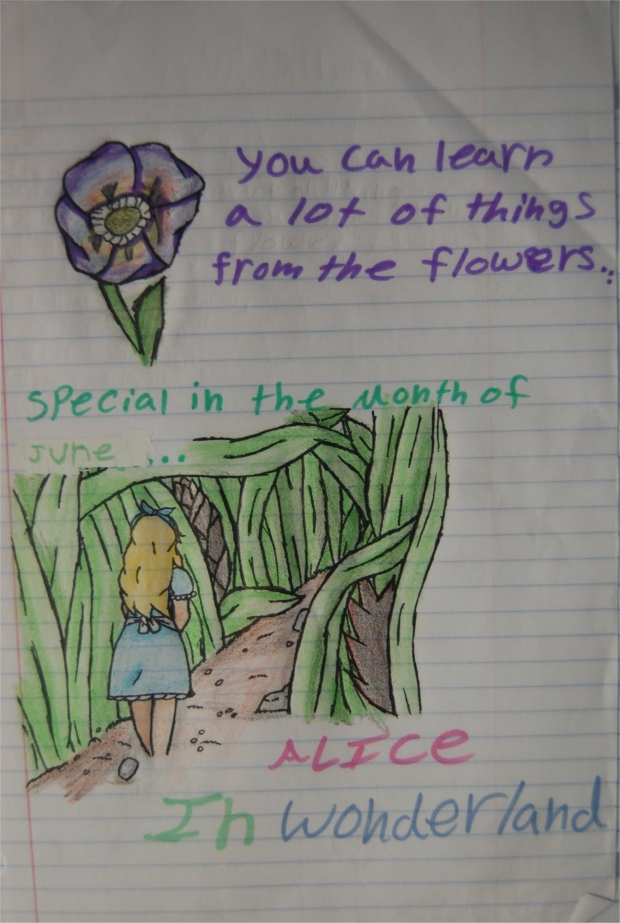 you can learn
a lot of things
from the flowers..
special in the month of
june ...
ALICE
In wonderland